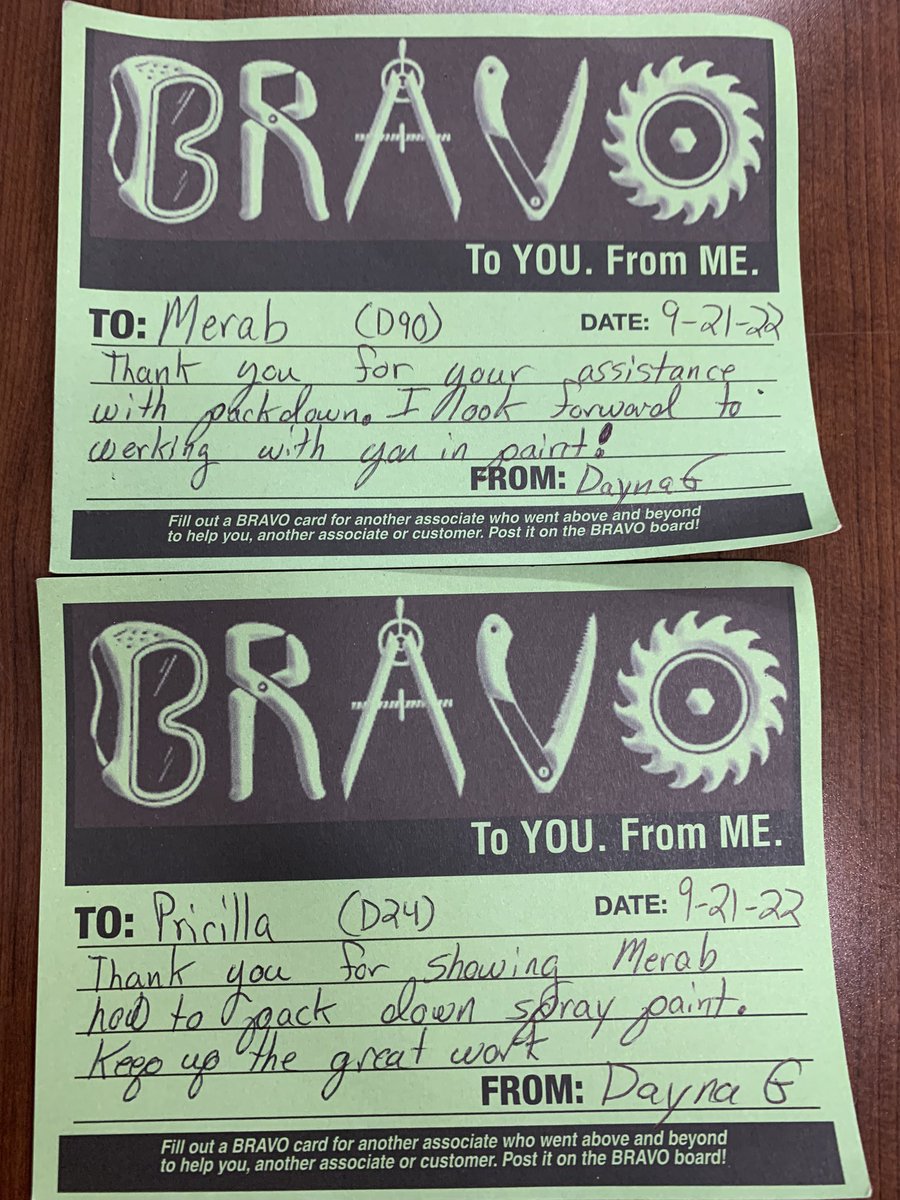 BRAVO
To YOU. From ME.
TO: Merab (D90) DATE: 9-21-22
Thank you for your assistance
with packdown. I look forward to
working with you in paint!
FROM: Dayna G
Fill out a BRAVO card for another associate who went above and beyond
to help you, another associate or customer. Post it on the BRAVO board!
BRAVO
To YOU. From ME.
TO: Pricilla (D24) DATE: 9-21-22
Thank you for showing Merab
how to pack down spray paint.
Keep up the great work
FROM: Dayna G
Fill out a BRAVO card for another associate who went above and beyond
to help you, another associate or customer. Post it on the BRAVO board!